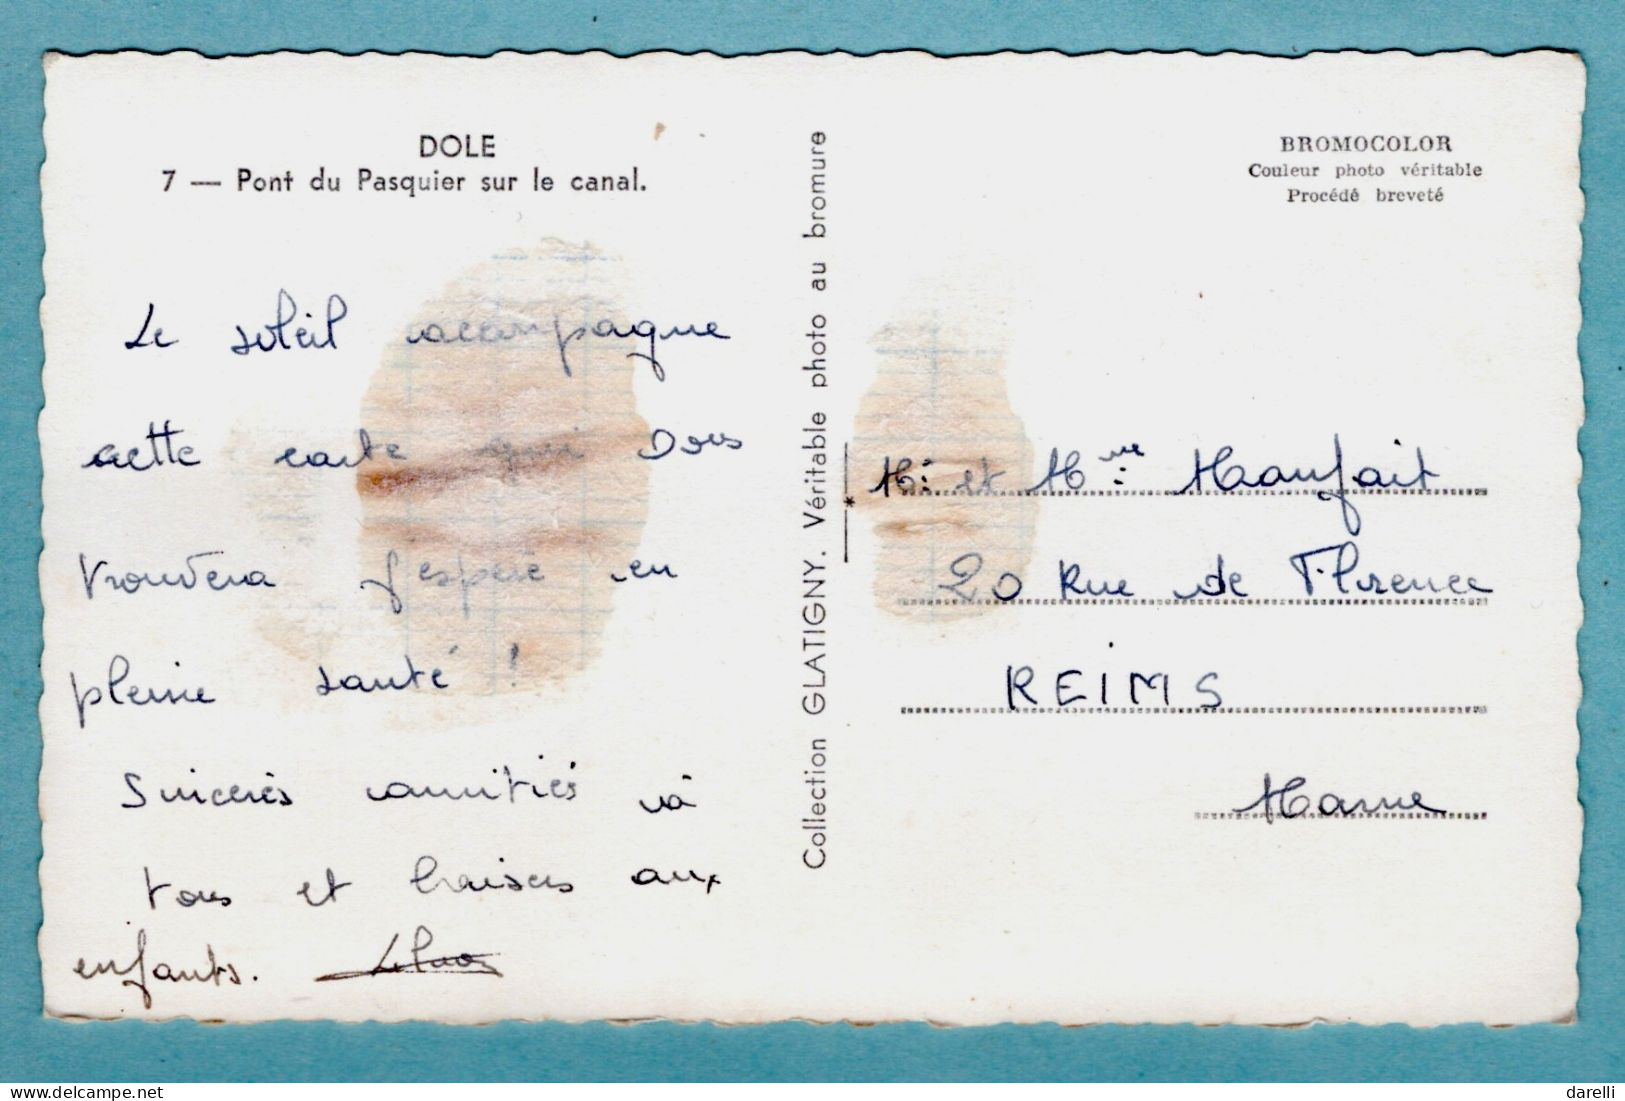 DOLE
7 — Pont du Pasquier sur le canal.
Le soleil accompagne
cette carte qui vous
trouvera j'espère en
pleine santé !
Sincères amitiés à
tous et baisers aux
enfants.
Collection GLATIGNY. Véritable photo au bromure
BROMOCOLOR
Couleur photo véritable
Procédé breveté
Mr et Mme Manfait
20 Rue de Florence
REIMS
Marne
darelli